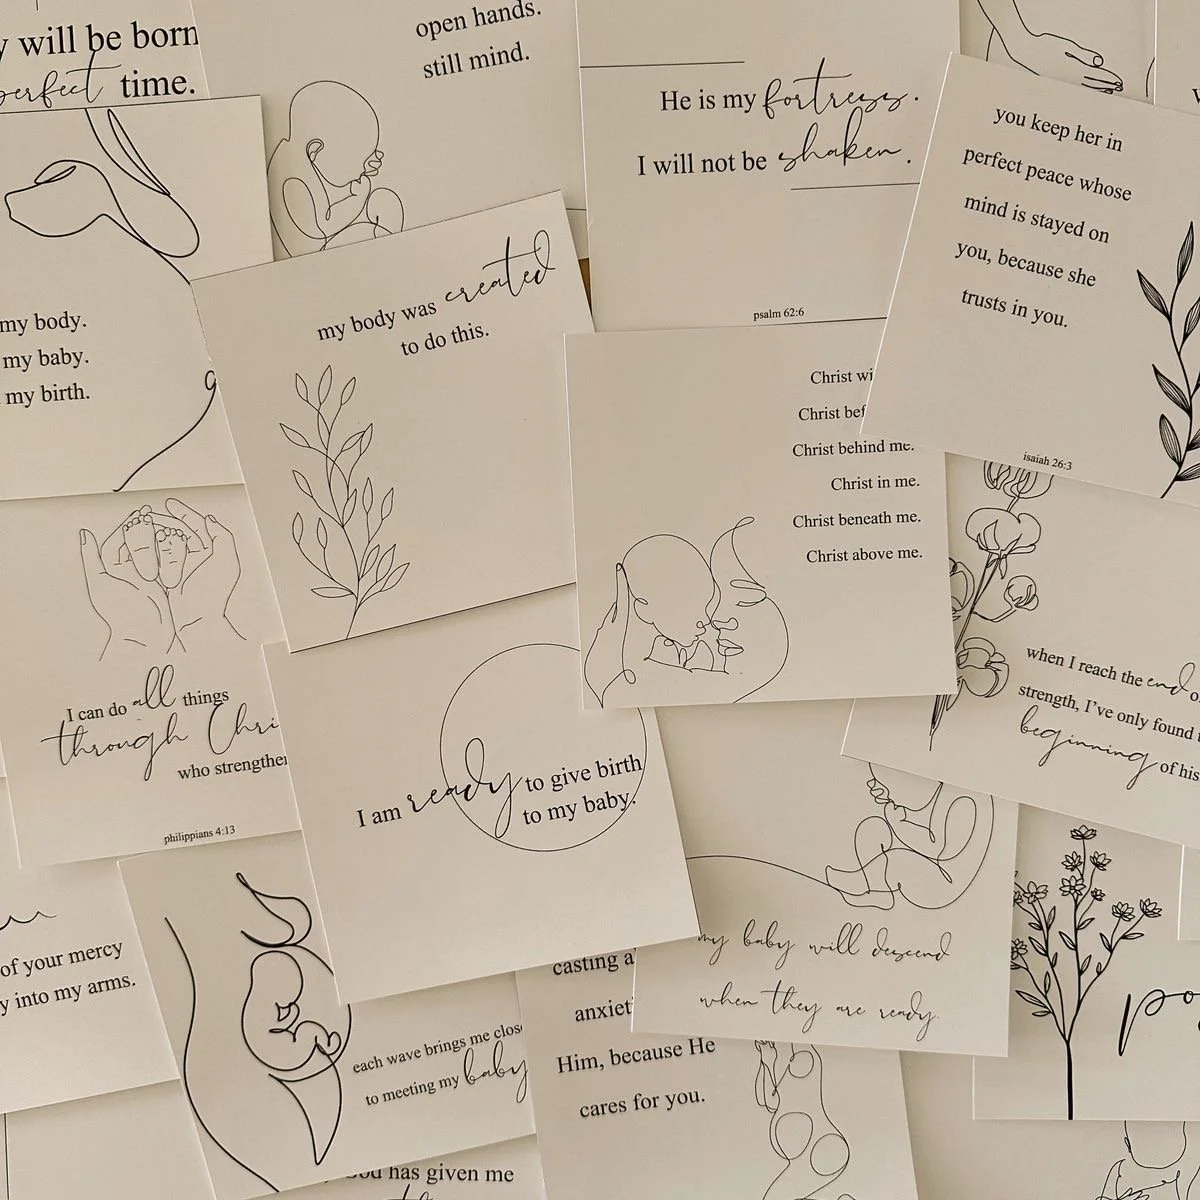 will be born
perfect time.
open hands.
still mind.
He is my fortress.
I will not be shaken.
psalm 62:6
you keep her in
perfect peace whose
mind is stayed on
you, because she
trusts in you.
isaiah 26:3
my body.
my baby.
my birth.
my body was created
to do this.
Christ
Christ
Christ behind me.
Christ in me.
Christ beneath me.
Christ above me.
I can do all things
through
who
philippians 4:13
I am ready to give birth
to my baby.
when I reach the end
strength, I've only found
beginning of his
of your mercy
into my arms.
each wave brings me
to meeting my baby
casting
Him, because He
cares for you.
my baby will descend
when they are ready.
has given me